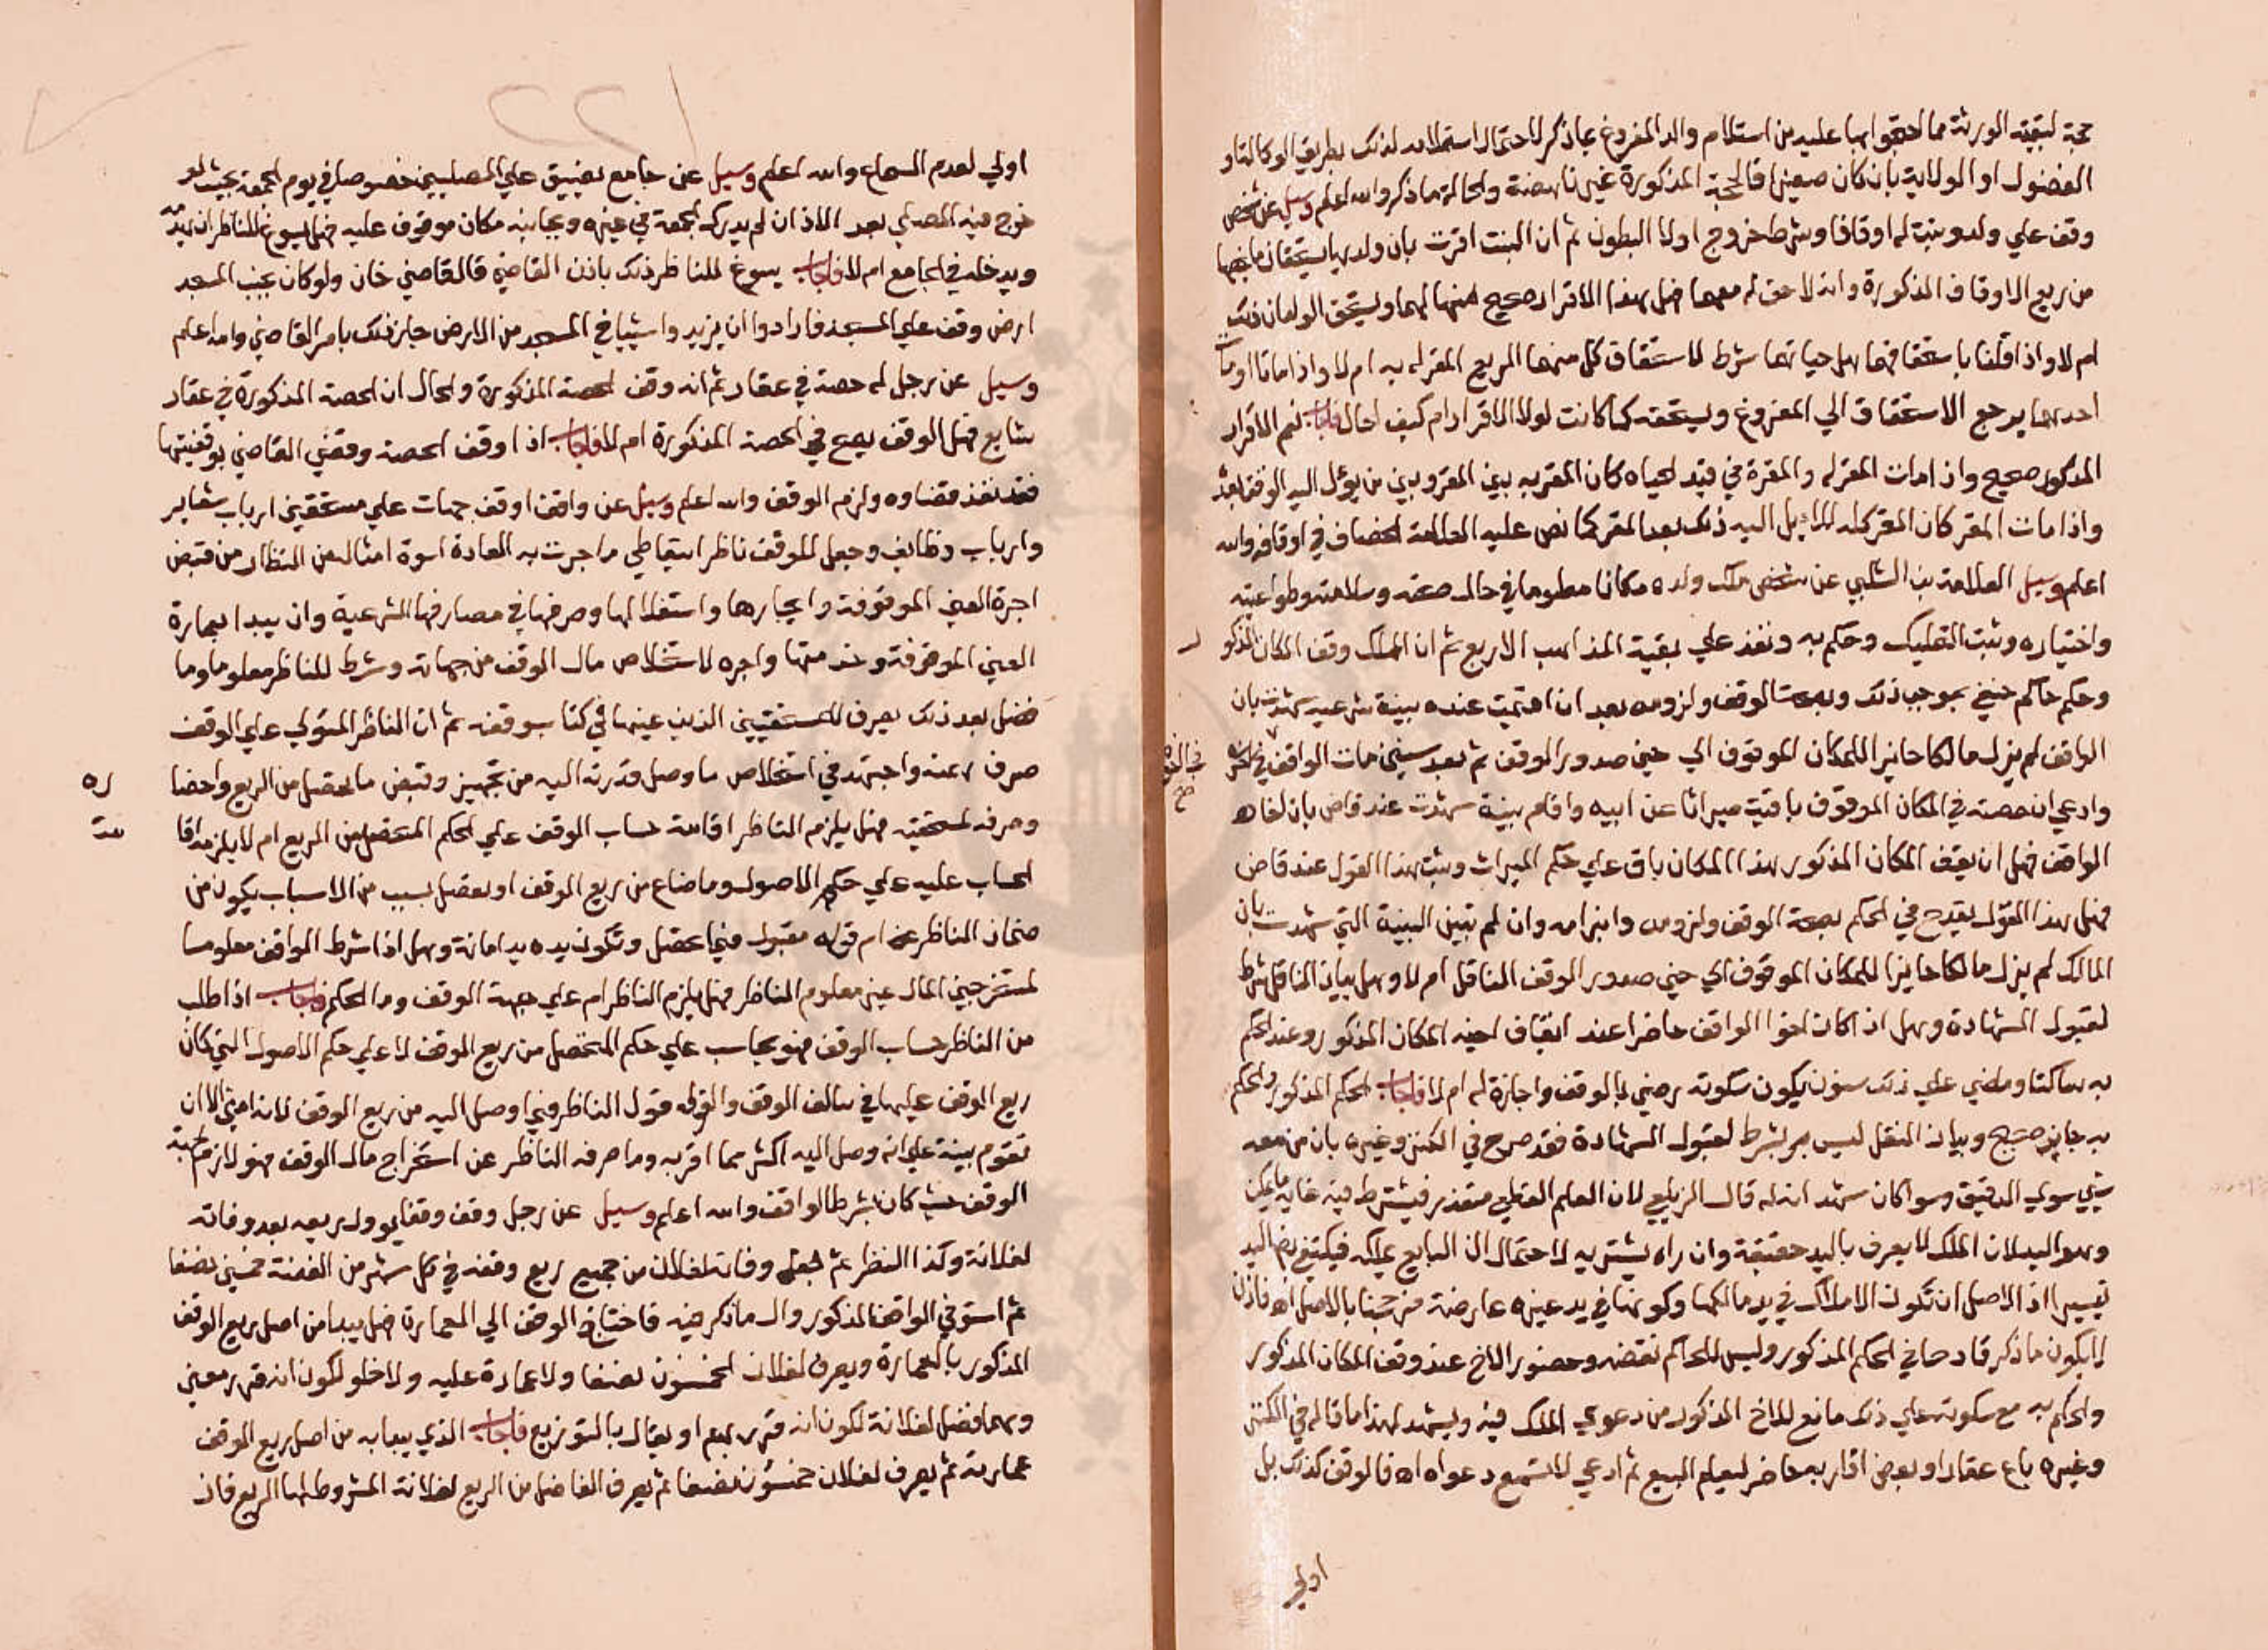 حجة لبقية الورثة مما احتجوا بها عليه من استلام والد المفروغ بما ذكر لاحتمال استلامه لذلك بطريق الوكالة او
الفضول او الولاية بان كان صغيرا فالحجة المذكورة غير ناهضة والحالة ما ذكر والله اعلم وسيل عن شخص
وقف علي ولد وبنت له اوقافا وشرط خروج اولاد البطون ثم ان البنت اقرت بان ولديها يستحقان ما يخصها
من ريع الاوقاف المذكورة وانه لا حق له معهما فهل هذا الاقرار صحيح منها لهما ويستحق الولدان ذلك
ام لا واذا قلنا باستحقاقهما هل حياتهما شرط لاستحقاق كل منهما الريع المقر له به ام لا واذا ماتا او مات
احدهما يرجع الاستحقاق الي المفروغ ويستحقه كما كانت لولا الاقرار ام كيف الحال فاجاب نعم الاقرار
المذكور صحيح واذا مات المقر له والمقرة في قيد الحياه كان المقر به بين المقر وبين من يؤل اليه الوقف بعده
واذا مات المقر كان المقر له للايل اليه ذلك بعد المقر كما نص عليه العلامة الخصاف في اوقافه والله
اعلم وسيل العلامة بن الشلبي عن شخص ملك ولده مكانا معلوما في حال صحته وسلامته وطواعيته
واختياره وثبت التمليك وحكم به ونفذ علي بقية المذاهب الاربع ثم ان الملك وقف المكان المذكو
ر
وحكم حاكم حنفي بموجب ذلك وبصحة الوقف ولزومه بعد ان اقيمت عنده بينة شرعية شهدت بان
الواقف لم يزل مالكا حايزا للمكان الموقوف الي حين صدور الوقف ثم بعد سنين مات الواقف
وادعي ان حصته في المكان الموقوف باقية ميراثا عن ابيه واقام بينة شهدت عند قاض بان اخاه
الواقف قبل ان يقف المكان المذكور هذا المكان باق علي حكم الميراث وثبت هذا القول عند قاض
فهل هذا القول يقدح في الحكم بصحة الوقف ولزومه وابرامه وان لم تبين البينة التي شهدت بان
المالك لم يزل مالكا حايزا للمكان الموقوف الي حين صدور الوقف الناقل ام لا وهل بيان الناقل شرط
لقبول الشهادة وهل اذا كان اخو الواقف حاضرا عند ايقاف اخيه المكان المذكور وعند الحكم
به ساكتا ومضي علي ذلك سنون يكون سكوته رضي بالوقف واجازة له ام لا فاجاب الحكم المذكور والحكم
به جايز صحيح وبيان النقل ليس هو بشرط لقبول الشهادة فقد صرح في الكنز وغيره بان من معه
شي سوي الدقيق وسوا كان شهد انه له قال الزيلعي لان العلم القطعي متعذر فيشترط فيه غاية ما يمكن
وهو اليد لان الملك لا يعرف باليد حقيقة وان راه يشتريه لاحتمال ان البايع يملكه فيكتفي بضم اليد
تيسيرا اذ الاصل ان تكون الاملاك في يد مالكها وكونها في يد غيره عارضة فرجحنا بالاصل اه فاذن
لا يكون ما ذكر قادحا في الحكم المذكور وليس للحاكم نقضه وحضور الاخ عند وقف المكان المذكور
والحكم به مع سكوته علي ذلك مانع للاخ المذكور من دعوي الملك فيه ويشهد لهذا ما قاله في الكنز
وغيره باع عقارا وبعض اقاربه حاضر ليعلم البيع ثم ادعي لا تسمع دعواه اه فالوقف كذلك بل
اولي
اولي لعدم السماع والله اعلم وسيل عن جامع يضيق علي المصليين خصوصا في يوم الجمعة بحيث لو
خرج منه المصلي بعد الاذان لم يدرك الجمعة في غيره وبجانبه مكان موقوف عليه فهل يسوغ للناظر ان يهدمه
ويدخله في الجامع ام لا فاجاب يسوغ للناظر ذلك باذن القاضي قال قاضي خان ولو كان بجنب المسجد
ارض وقف علي المسجد فارادوا ان يزيدوا شيا في المسجد من الارض جاز ذلك بامر القاضي والله اعلم
وسيل عن رجل له حصة في عقار ثم انه وقف الحصة المذكورة والحال ان الحصة المذكورة في عقار
شايع فهل الوقف يصح في الحصة المذكورة ام لا فاجاب اذا وقف الحصة وقضي القاضي بوقفيتها
فقد نفذ قضاوه ولزم الوقف والله اعلم وسيل عن واقف اوقف جهات علي مستحقين ارباب شعاير
وارباب وظايف وجعل للوقف ناظرا يتعاطي ما جرت به العادة اسوة امثاله من النظار من قبض
اجرة العين الموقوفة وايجارها واستغلالها وصرفها في مصارفها الشرعية وان يبدا بعمارة
العين الموقوفة وخدمتها واجره لاستخلاص مال الوقف من جهاته وشرط للناظر معلوما وما
فضل بعد ذلك يصرف للمستحقيين الذين عينهم في كتاب وقفه ثم ان الناظر المتولي علي الوقف
صرف همته واجتهد في استخلاص ما وصل قدرته اليه من تجهيز وقبض ما تحصل من الريع واحضا
ره
وصرفه لمستحقيه فهل يلزم الناظر اقامة حساب الوقف علي الحكم المتحصل من الريع ام لا يلزمه اقا
مة
الحساب عليه علي حكم الاصول وما ضاع من ريع الوقف او تعطل بسبب من الاسباب يكون من
ضمان الناظر عنه ام قوله مقبول فيما تحصل وتكون يده يد امانة وهل اذا شرط الواقف معلوما
لمستخرجين المال غير معلوم الناظر فهل يلزم الناظر ام علي جهة الوقف وما الحكم فاجاب اذا طلب
من الناظر حساب الوقف فهو يحاسب علي حكم المتحصل من ريع الوقف لا علي حكم الاصول التي كان
ريع الوقف عليها في سالف الوقف والقول قول الناظر فيما وصل اليه من ريع الوقف لانه امين الا ان
تقوم بينة علي انه وصل اليه اكثر مما اقر به وما صرفه الناظر عن استخراج مال الوقف فهو لازم لجهة
الوقف حيث كان بشرط الواقف والله اعلم وسيل عن رجل وقف وقفا يؤول ريعه بعد وفاته
لفلانة وكذا النظر ثم جعل وفاته لفلان من جميع ريع وقفه في كل شهر من الفضة خمسين نصفا
ثم استوفي الواقف المذكور وال ما ذكر فيه فاحتاج الوقف الي العمارة فهل يبدا من اصل ريع الوقف
المذكور بالعمارة ويصرف لفلان الخمسون نصفا ولا عمارة عليه ولا خلو لكون انه قدر معين
ومهما فضل لفلانة لكون انه قدر مبهم او يقال بالتوزيع فاجاب الذي يبدا به من اصل ريع الوقف
عمارته ثم يصرف لفلان خمسون نصفا ثم يصرف الفاضل من الريع لفلانة المشروط لها الريع فان